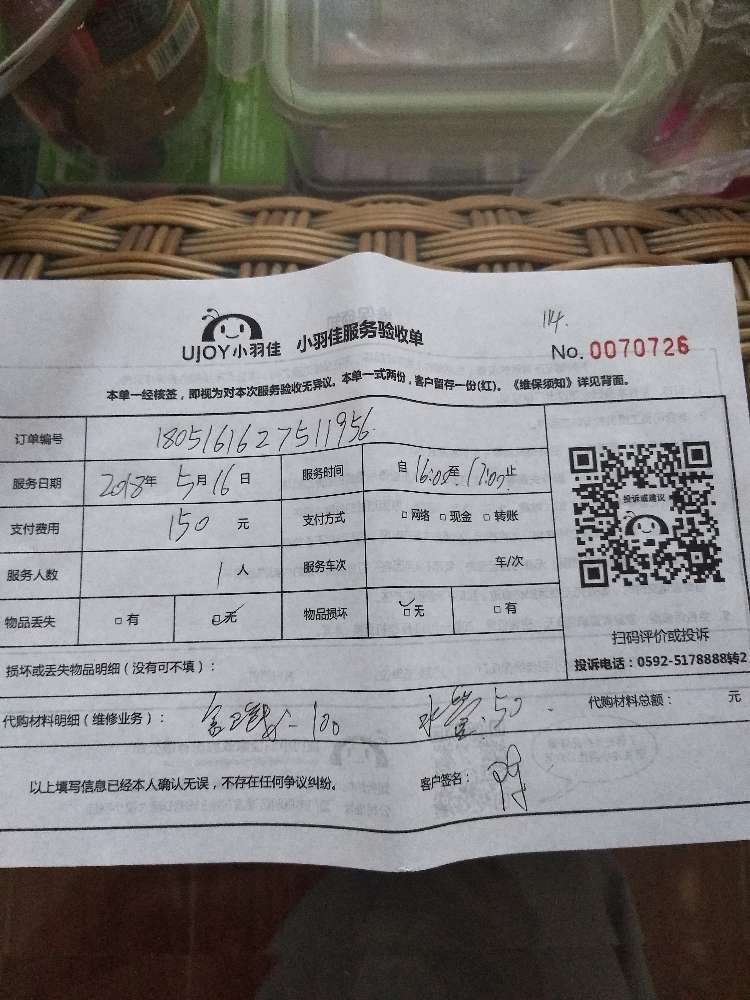 114.
UJOY小羽佳 小羽佳服务验收单 No. 0070726
本单一经核签，即视为对本次服务验收无异议。本单一式两份，客户留存一份(红)。《维保须知》详见背面。
订单编号 1805161627511956
服务日期 2018年 5月 16日 服务时间 自 16:00至 17:00止
支付费用 150 元 支付方式 □ 网络 □ 现金 □ 转账
服务人数 1 人 服务车次 车/次
物品丢失 □ 有 □ 无 物品损坏 □ 无 □ 有
投诉或建议
扫码评价或投诉
投诉电话：0592-5178888转2
损坏或丢失物品明细（没有可不填）：
代购材料明细（维修业务）： 100 水管:50 代购材料总额： 元
以上填写信息已经本人确认无误，不存在任何争议纠纷。 客户签名：